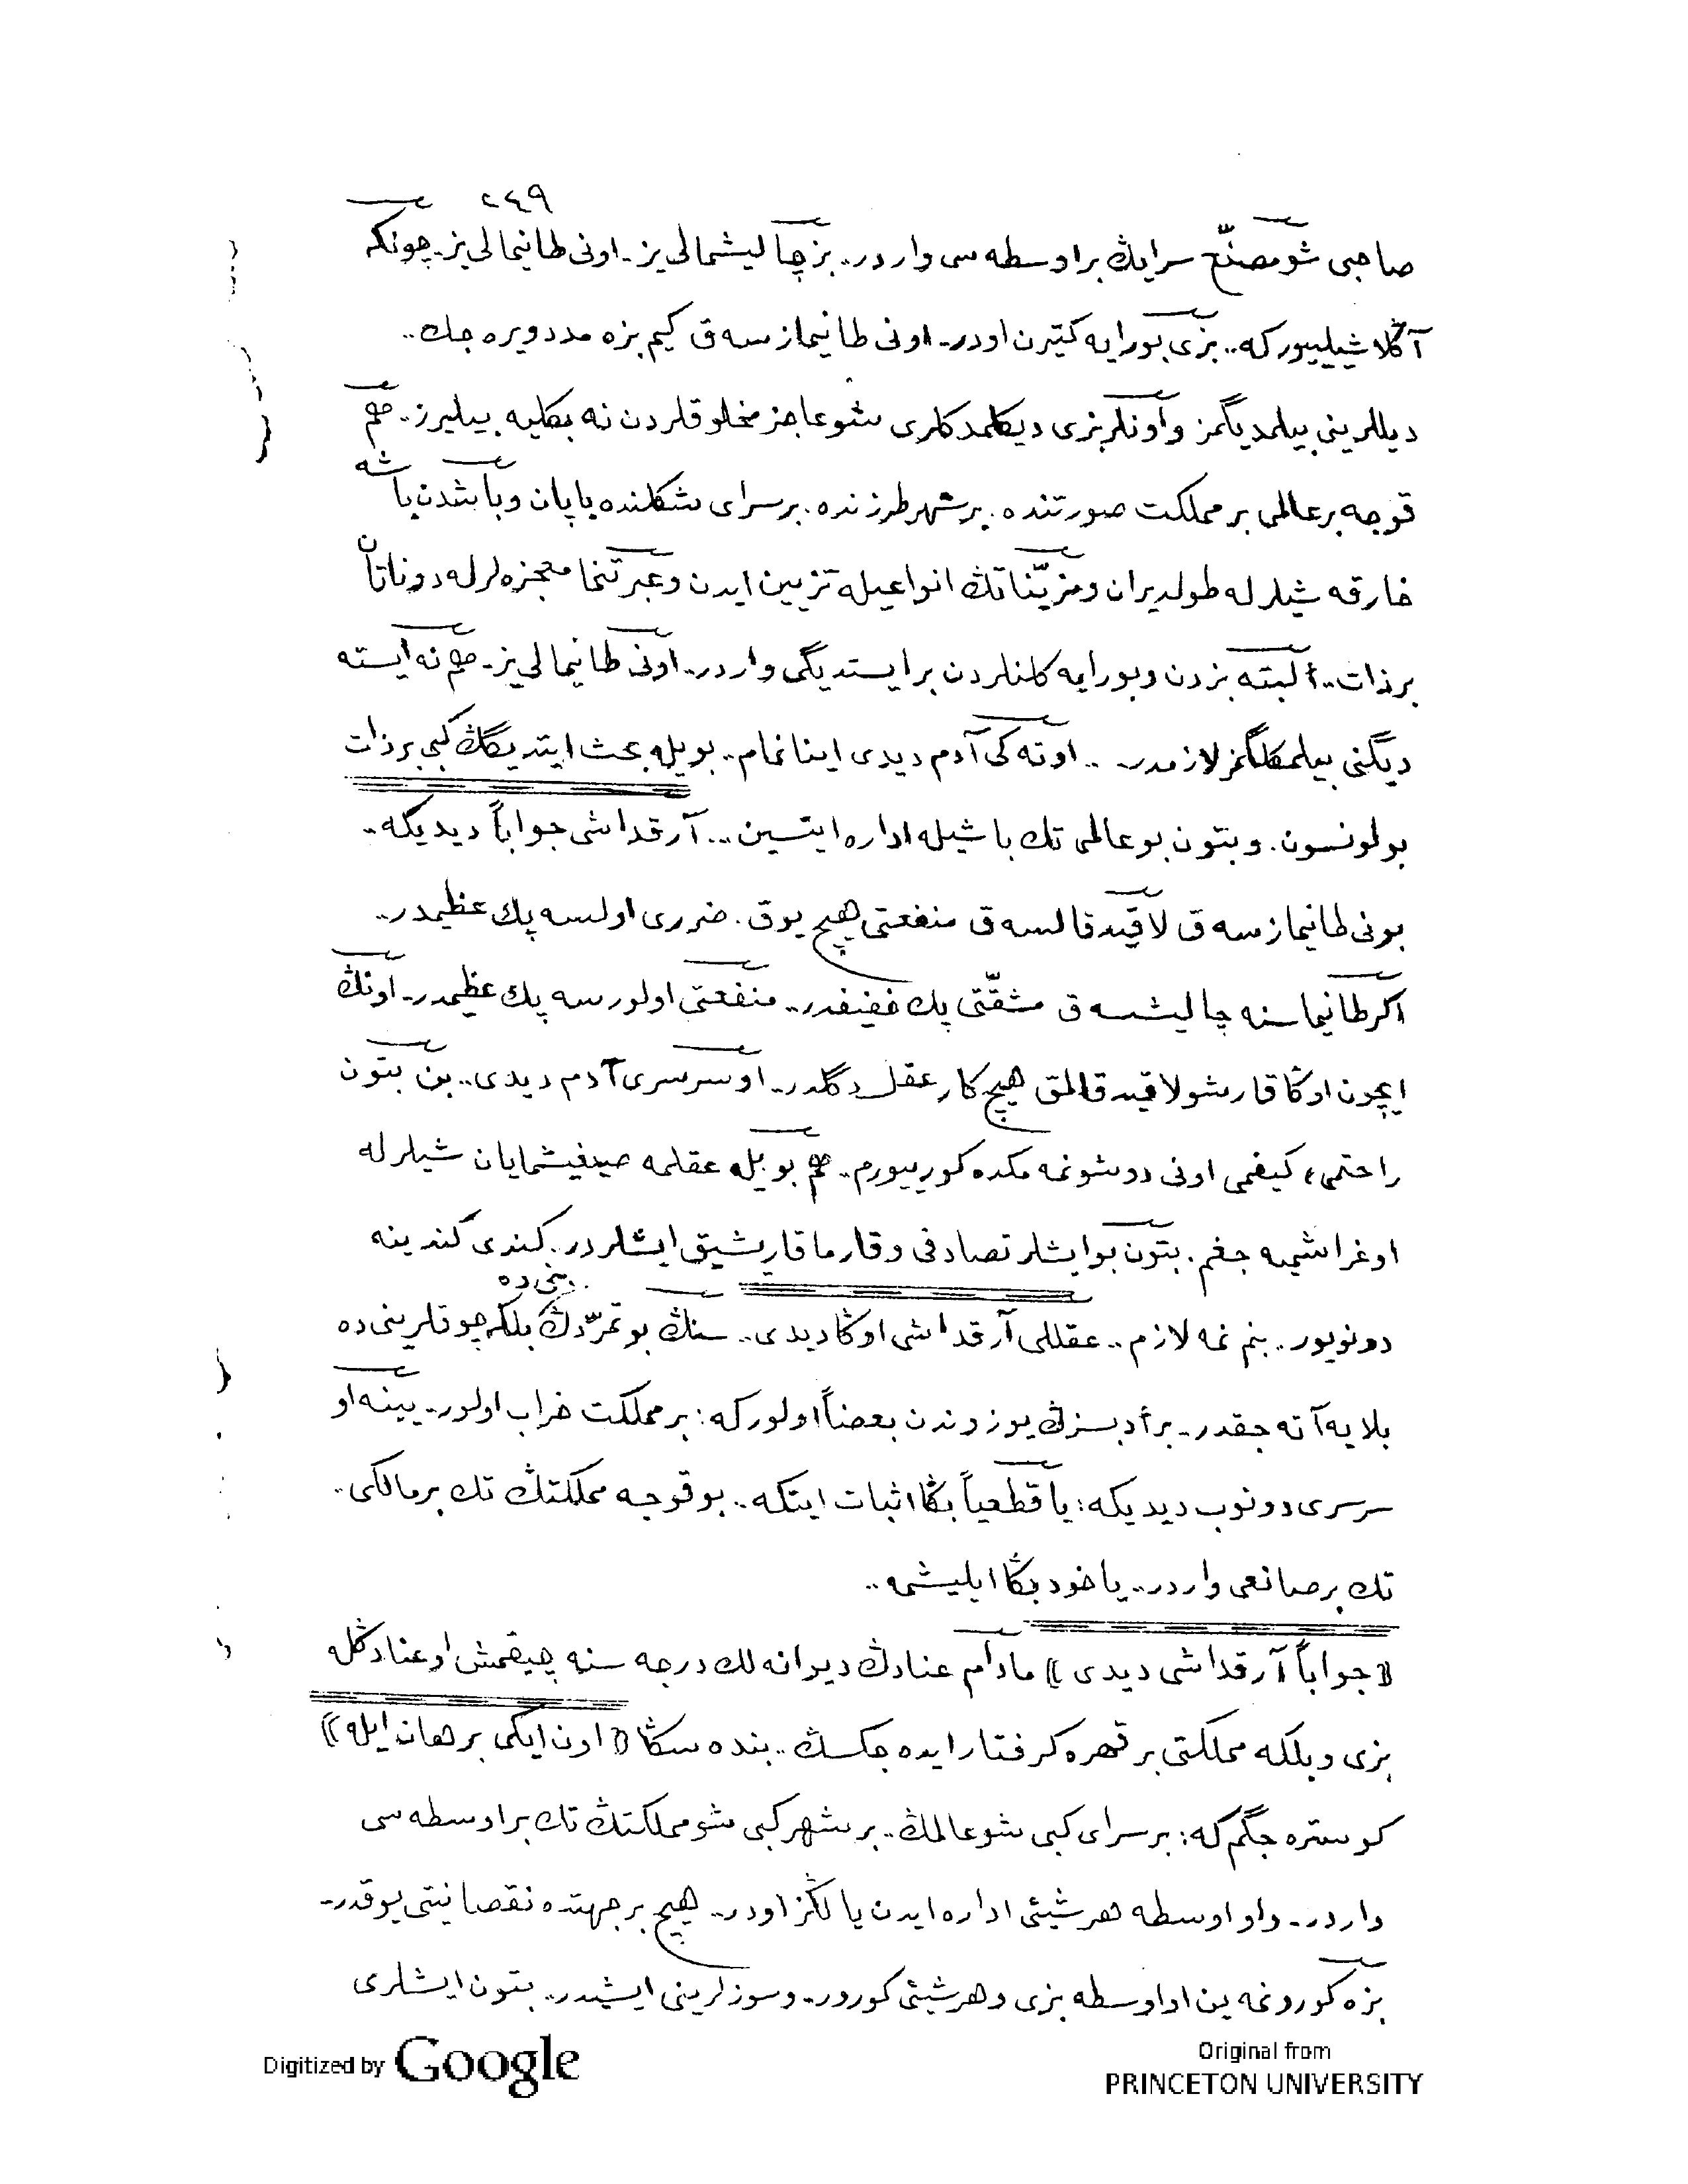 ٢٤٩
صاحبی شو مصنّع سرایڭ بر اوسطه سی واردر.. بز چالیشمالی یز.. اونی طانیمالی یز.. چونکه
آڭلاشیلییور که.. بزی بورایه کتیرن اودر.. اونی طانیمازسه ق کیم بزه مدد ویره جك..
دیللرینی بیلمدیگمز و اونلر بزی دیڭلمدکلری شو عاجز مخلوقلردن نه بکلیه بیلیرز.. هم
قوجه بر عالمی بر مملکت صورتنده. بر شهر طرزنده. بر سرای شکلنده یاپان و باشدن باشه
خارقه شیلرله طولدیران و مزیّناتڭ انواعیله تزیین ایدن و عبرتنما معجزه لرله دوناتان
بر ذات.. ألبته بزدن و بورایه کلنلردن بر ایستدیگی واردر.. اونی طانیمالی یز.. هم نه ایسته
دیگنی بیلمکلگمز لازمدر.. .. اوته کی آدم دیدی اینانمام.. بویله بحث ایتدیگڭ کبی بر ذات
بولونسون. و بتون بو عالمی تك باشیله اداره ایتسین... آرقداشی جواباً دیدیکه..
بونی طانیمازسه ق لاقید قالسه ق منفعتی هیچ یوق. ضرری اولسه پك عظیمدر..
اکر طانیماسنه چالیشسه ق مشقّتی پك خفیفدر.. منفعتی اولورسه پك عظیمدر.. اونڭ
ایچون اوڭا قارشو لاقید قالمق هیچ کار عقل دگلدر.. او سرسری آدم دیدی.. بن بتون
راحتمی، کیفمی اونی دوشونمه مکده کورییورم.. هم بویله عقلمه صیغیشمایان شیلرله
اوغراشمیه جغم. بتون بو ایشلر تصادفی و قارما قاریشیق ایشلردر. کندی کندینه
دونویور.. بنم نمه لازم.. عقللی آرقداشی اوڭا دیدی.. سنڭ بو تمرّدڭ بنی ده بلکه چوقلرینی ده
بلایه آته جقدر.. بر أدبسزڭ یوزوندن بعضاً اولور که: بر مملکت خراب اولور.. یینه او
سرسری دونوب دیدیکه: یا قطعیاً بڭا اثبات ایتکه.. بو قوجه مملکتڭ تك بر مالکی..
تك بر صانعی واردر.. یاخود بڭا ایلیشمه..
«جواباً آرقداشی دیدی» مادام عنادڭ دیوانه لك درجه سنه چیقمش او عنادڭله
بزی و بلکه مملکتی بر قهره گرفتار ایده جکسڭ.. بنده سڭا «اون ایکی برهان ایله»
کوستره جگم که: بر سرای کبی شو عالمڭ.. بر شهر کبی شو مملکتڭ تك بر اوسطه سی
واردر.. و او اوسطه هر شیئی اداره ایدن یالڭز اودر.. هیچ بر جهتده نقصانیتی یوقدر..
بزه کورونمه ین او اوسطه بزی و هر شیئی کورور.. و سوزلرینی ایشیدر.. بتون ایشلری
Digitized by Google
Original from
PRINCETON UNIVERSITY